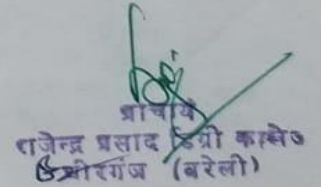 प्राचार्य
राजेन्द्र प्रसाद डिग्री कालेज
मीरगंज (बरेली)